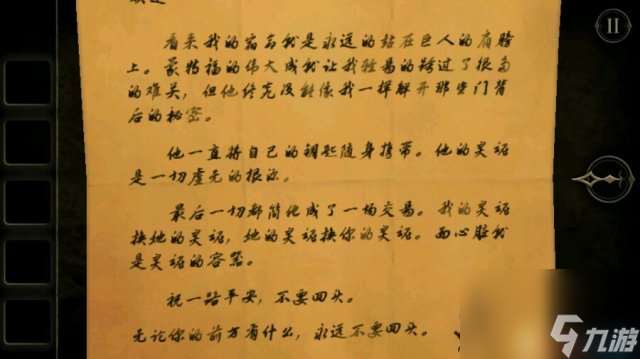 看来我的宿命就是永远的站在巨人的肩膀
上。蒙特福的伟大成就让我轻易的跨过了很高
的难关，但他终究没能像我一样解开那些门背
后的秘密。
他一直将自己的钥匙随身携带。他的灵魂
是一切虚无的根源。
最后一切都简化成了一场交易。我的灵魂
换她的灵魂，她的灵魂换你的灵魂。而心脏就
是灵魂的容器。
祝一路平安，不要回头。
无论你的前方有什么，永远不要回头。
九游